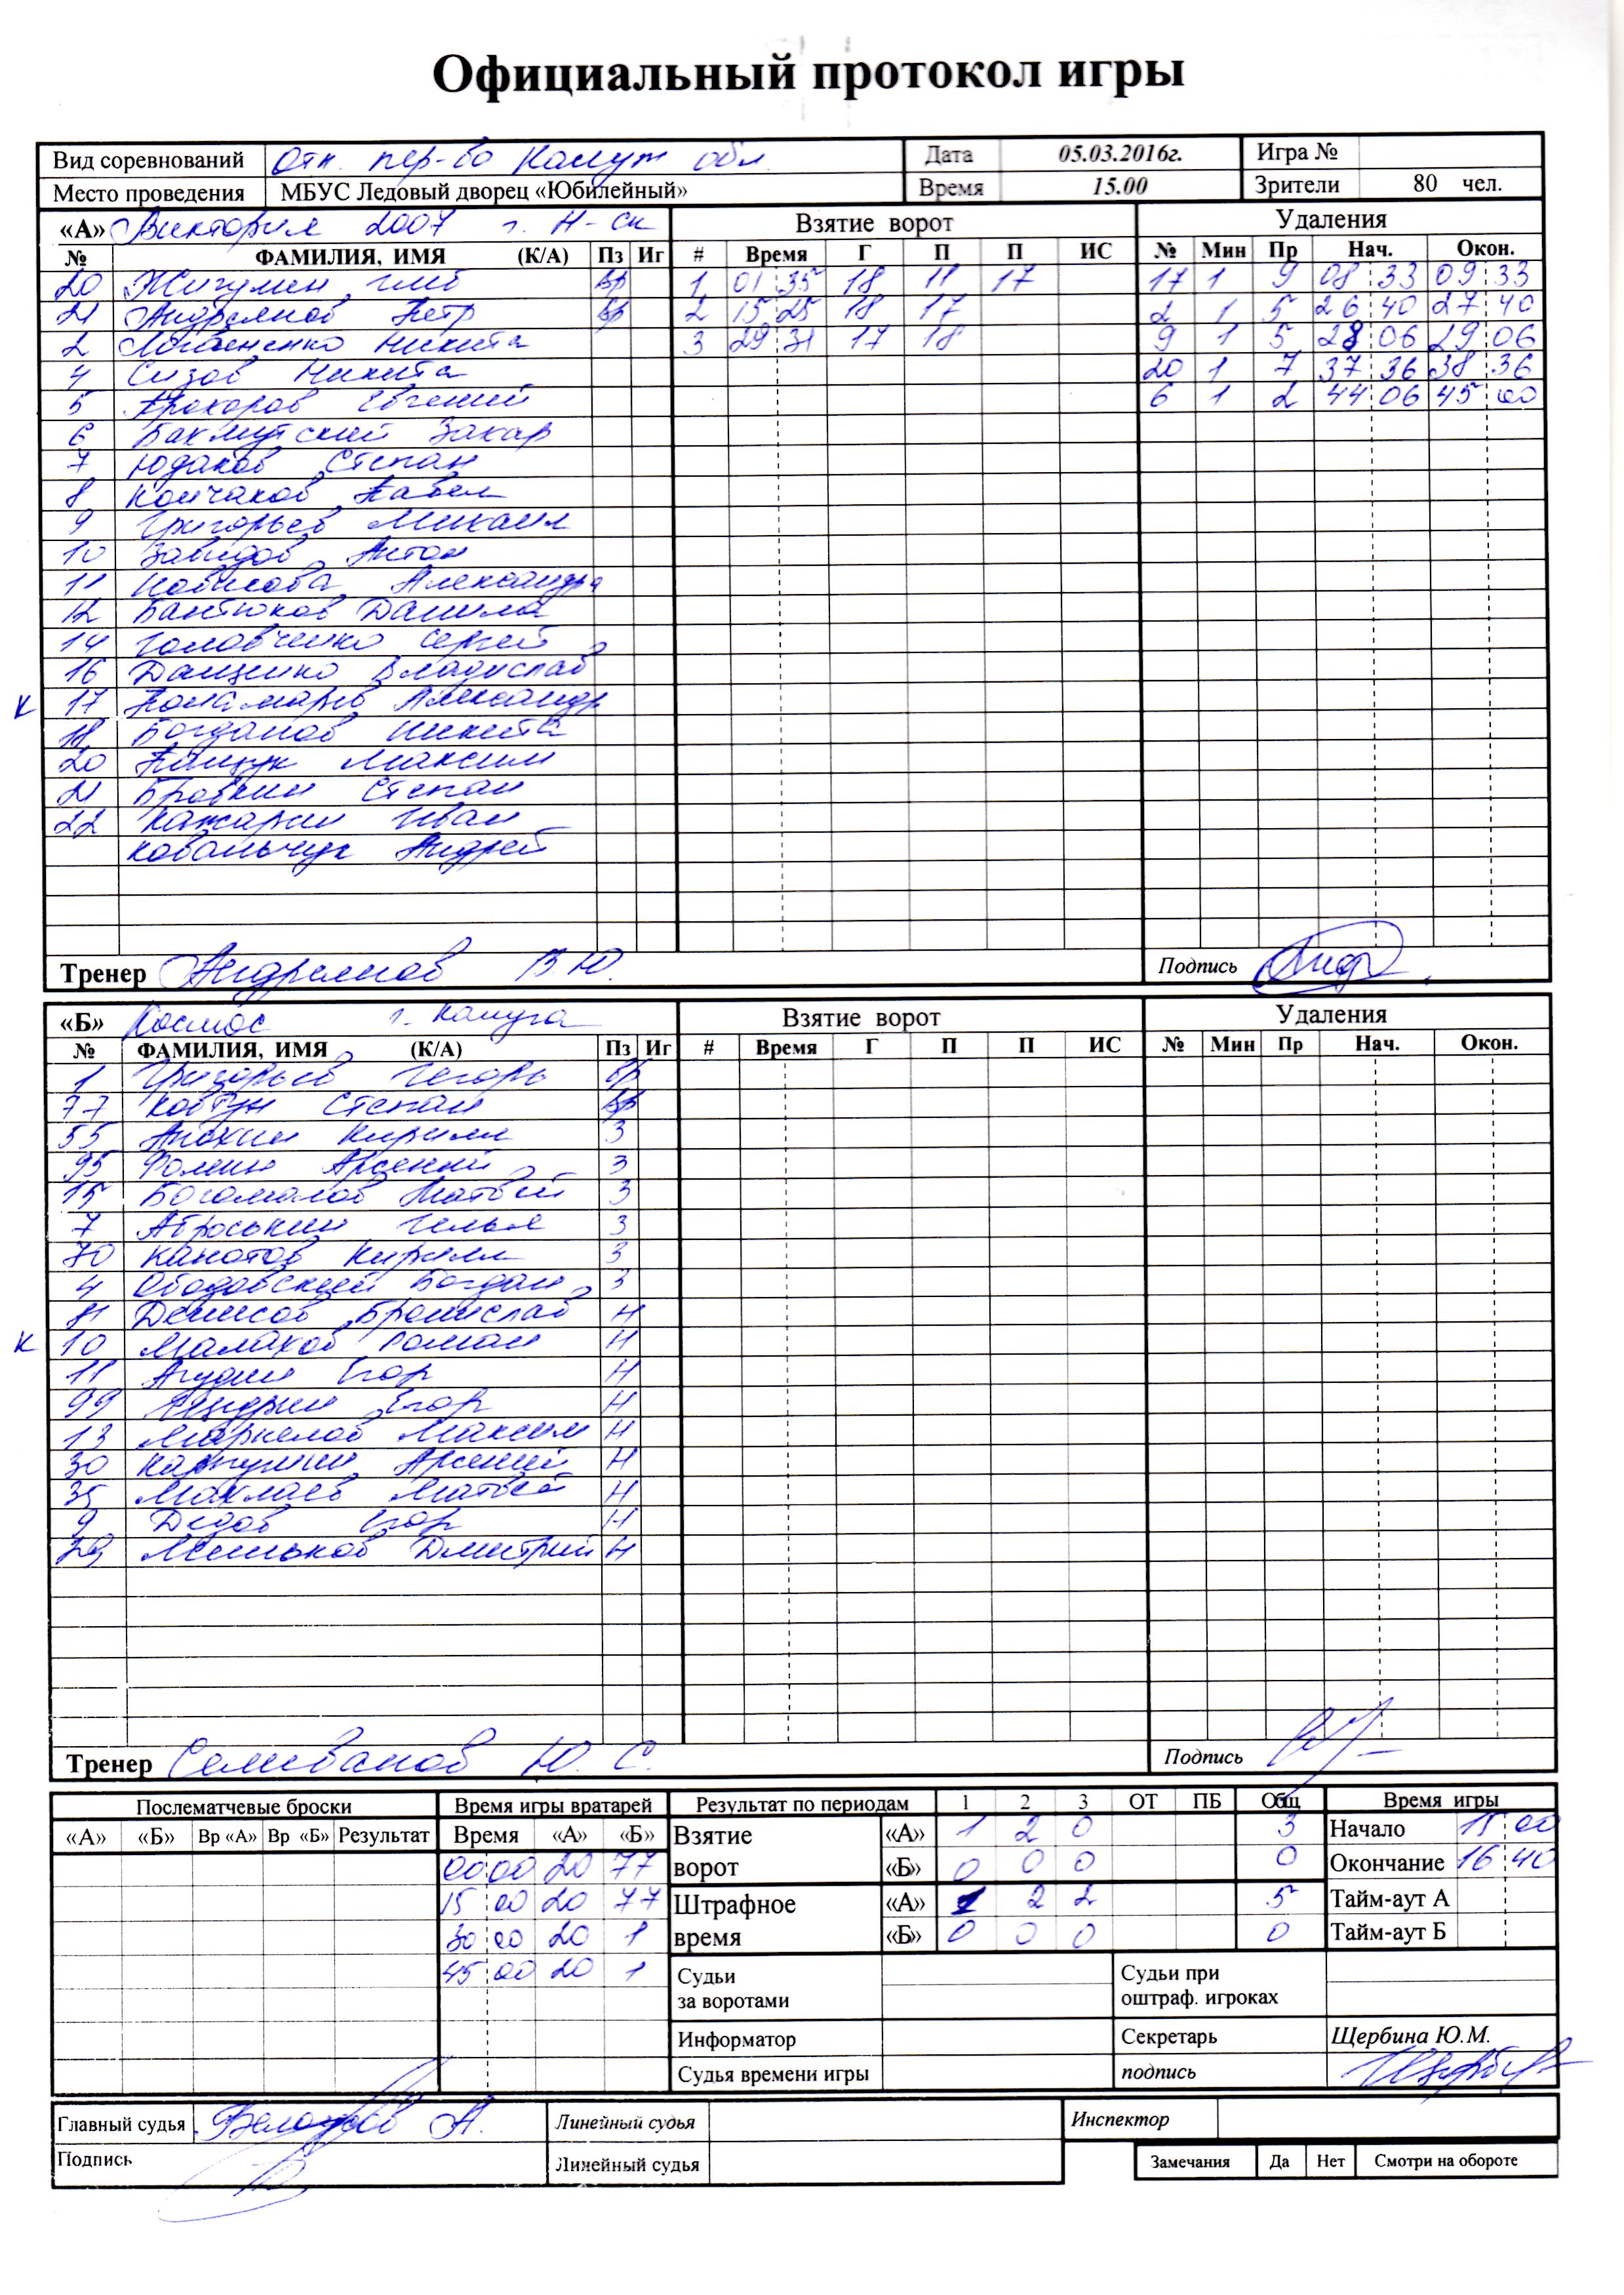 Официальный протокол игры
Вид соревнований Отк. пер-во Калуж обл. Дата 05.03.2016г. Игра №
Место проведения МБУС Ледовый дворец «Юбилейный» Время 15.00 Зрители 80 чел.
«А» Виктория 2007 г. Н-ск Взятие ворот Удаления
№ ФАМИЛИЯ, ИМЯ (К/А) Пз Иг # Время Г П П ИС № Мин Пр Нач. Окон.
20 Жигулин Глеб Вр 1 01 35 18 11 17 17 1 9 08 33 09 33
21 Андреянов Петр Вр 2 15 25 18 17 2 1 5 26 40 27 40
2 Логвиненко Никита 3 29 31 17 18 9 1 5 28 06 29 06
4 Сизов Никита 20 1 7 37 36 38 36
5 Прохоров Евгений 6 1 2 44 06 45 00
6 Бахмутский Захар
7 Юдаков Степан
8 Кончаков Павел
9 Григорьев Михаил
10 Завидов Антон
11 Александра
12 Бантюков Данила
14 Головченко Сергей
16 Данценко Владислав
К 17 Понамарев Александр
18 Богданов Никита
20 Пащук Максим
21 Бровкин Степан
22 Кажарин Иван
Ковальчук Андрей
Тренер Андреянов В Ю. Подпись
«Б» Космос г. Калуга Взятие ворот Удаления
№ ФАМИЛИЯ, ИМЯ (К/А) Пз Иг # Время Г П П ИС № Мин Пр Нач. Окон.
1 Григорьев Игорь Вр
77 Ковтун Степан Вр
55 Анохин Кирилл З
95 Фомин Арсений З
15 Богомолов Матвей З
7 Аброськин Илья З
70 Канатов Кирилл З
4 Ободовский Богдан З
81 Денисов Бронислав Н
К 10 Малахов Роман Н
11 Агудин Егор Н
99 Егор Н
13 Маркелов Максим Н
30 Арсений Н
35 Маклаев Матвей Н
9 Дедов Егор Н
29 Меньков Дмитрий Н
Тренер Селиванов Ю. С. Подпись
Послематчевые броски Время игры вратарей Результат по периодам 1 2 3 ОТ ПБ Общ Время игры
«А» «Б» Вр «А» Вр «Б» Результат Время «А» «Б» Взятие ворот «А» 1 2 0 3 Начало 15 00
00 00 20 77 «Б» 0 0 0 0 Окончание 16 40
15 00 20 77 Штрафное время «А» 1 2 2 5 Тайм-аут А
30 00 20 1 «Б» 0 0 0 0 Тайм-аут Б
45 00 20 1 Судьи за воротами Судьи при оштраф. игроках
Информатор Секретарь Щербина Ю.М.
Судья времени игры подпись
Главный судья А. Линейный судья Инспектор
Подпись Линейный судья Замечания Да Нет Смотри на обороте